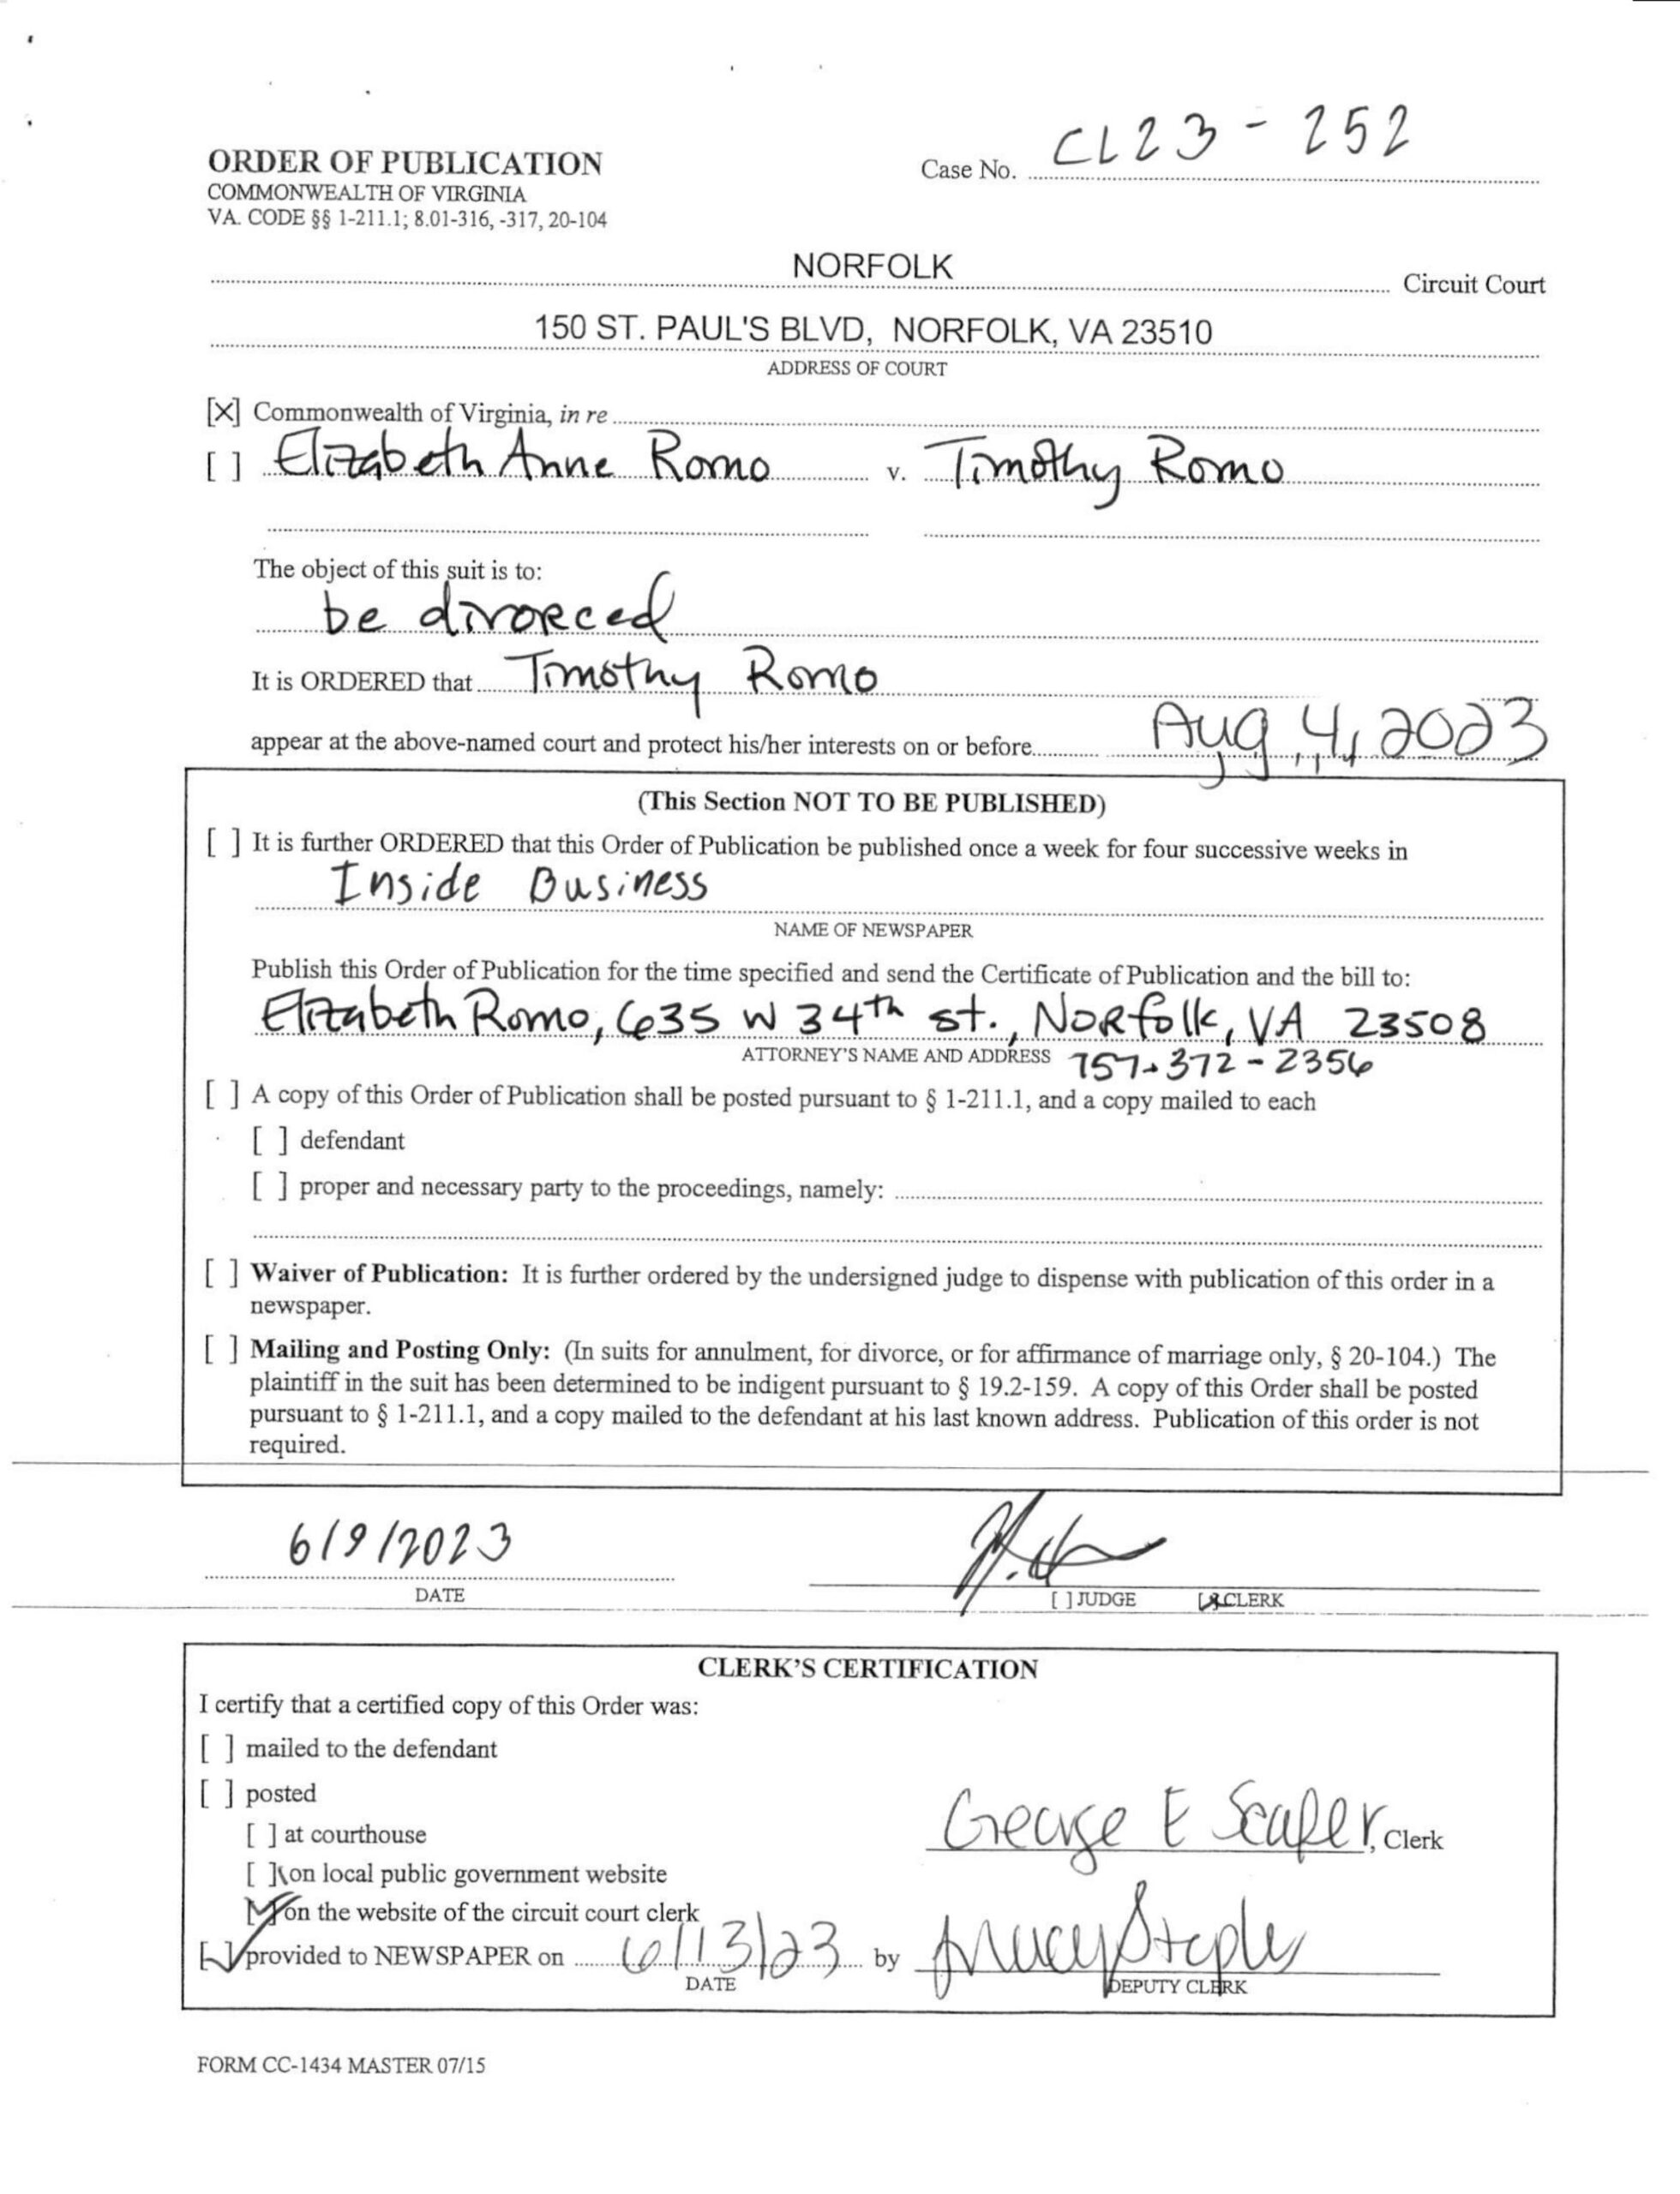 CL23-252
ORDER OF PUBLICATION Case No.
COMMONWEALTH OF VIRGINIA
VA. CODE §§ 1-211.1; 8.01-316, -317, 20-104
NORFOLK Circuit Court
150 ST. PAUL'S BLVD, NORFOLK, VA 23510
ADDRESS OF COURT
[X] Commonwealth of Virginia, in re
[ ] Elizabeth Anne Romo v. Timothy Romo
The object of this suit is to:
be divorced
It is ORDERED that Timothy Romo
appear at the above-named court and protect his/her interests on or before Aug, 4, 2023
(This Section NOT TO BE PUBLISHED)
[ ] It is further ORDERED that this Order of Publication be published once a week for four successive weeks in
Inside Business
NAME OF NEWSPAPER
Publish this Order of Publication for the time specified and send the Certificate of Publication and the bill to:
Elizabeth Romo, 635 W 34th st., Norfolk, VA 23508
ATTORNEY'S NAME AND ADDRESS 757-372-2356
[ ] A copy of this Order of Publication shall be posted pursuant to § 1-211.1, and a copy mailed to each
[ ] defendant
[ ] proper and necessary party to the proceedings, namely:
[ ] Waiver of Publication: It is further ordered by the undersigned judge to dispense with publication of this order in a
newspaper.
[ ] Mailing and Posting Only: (In suits for annulment, for divorce, or for affirmance of marriage only, § 20-104.) The
plaintiff in the suit has been determined to be indigent pursuant to § 19.2-159. A copy of this Order shall be posted
pursuant to § 1-211.1, and a copy mailed to the defendant at his last known address. Publication of this order is not
required.
6/9/2023
DATE [ ] JUDGE [X] CLERK
CLERK'S CERTIFICATION
I certify that a certified copy of this Order was:
[ ] mailed to the defendant
[ ] posted
[ ] at courthouse George E Scafer, Clerk
[ ] on local public government website
[✓] on the website of the circuit court clerk
[✓] provided to NEWSPAPER on 6/13/23 by
DATE DEPUTY CLERK
FORM CC-1434 MASTER 07/15